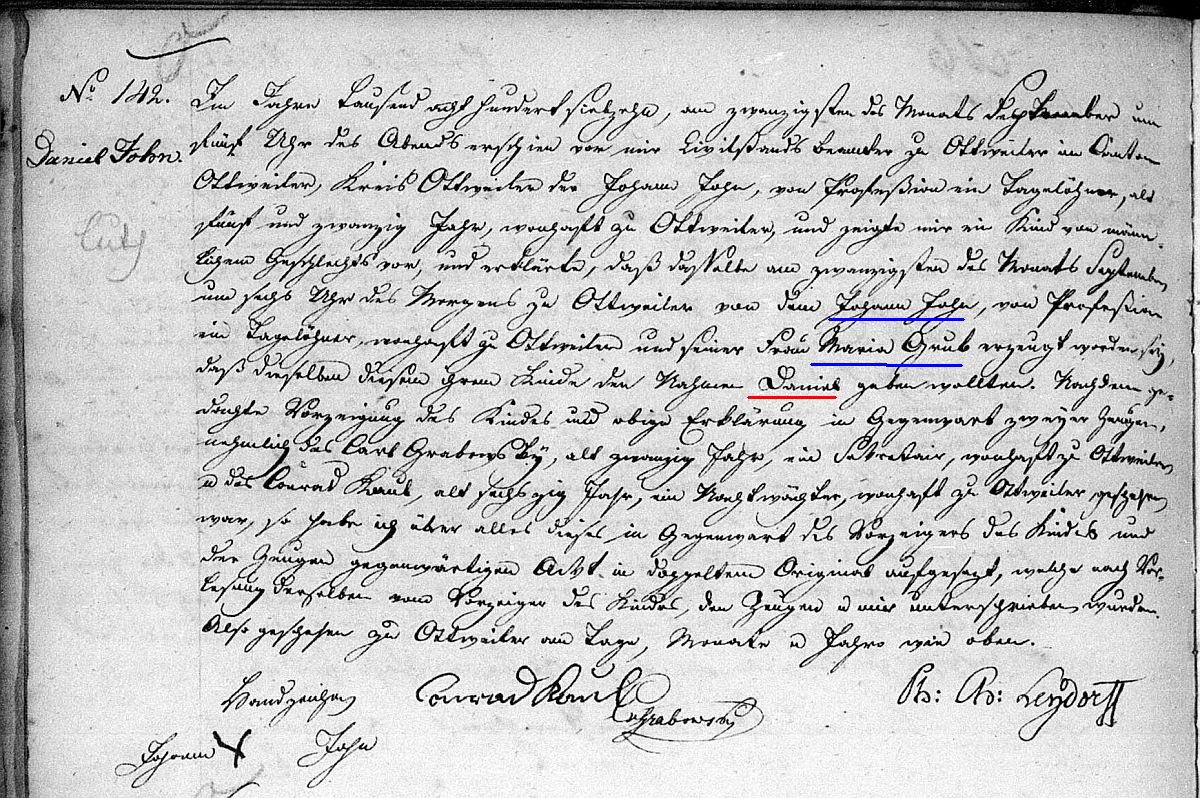 No 142.
Daniel John.
luth
Im Jahre tausend acht hundert siebzehn, am zwanzigsten des Monats September um
fünf Uhr des Abends erschien vor mir Civilstands Beamter zu Ottweiler im Canton
Ottweiler, Kreis Ottweiler der Johann John, von Profeßion ein Tagelöhner, alt
fünf und zwanzig Jahr, wonhaft zu Ottweiler, und zeigte mir ein Kind von männ-
lichem Geschlechts vor, und erklärte, daß dasselbe am zwanzigsten des Monats September
um sechs Uhr des Morgens zu Ottweiler von dem Johann John, von Profeßion
ein Tagelöhner, wonhaft zu Ottweiler und seiner Frau Maria Grub erzeugt worden sey,
daß dieselben diesem ihrem Kinde den Nahmen Daniel geben wollten. Nachdem ge-
dachte Vorzeigung des Kindes und obige Erklärung in Gegenwart zweyer Zeugen,
nehmlich des Carl Grabowsky, alt zwanzig Jahr, ein Secretair, wonhaft zu Ottweiler,
u des Conrad Kaul, alt sechszig Jahr, ein Nachtwächter, wonhaft zu Ottweiler, geschehen
war, so habe ich über alles dieses in Gegenwart des Vorzeigers des Kindes und
der Zeugen gegenwärtigen Act in doppeltem Original aufgesezt, welche nach Vor-
lesung derselben vom Vorzeiger des Kindes, den Zeugen u mir unterschrieben wurden.
Also geschehen zu Ottweiler am Tage, Monate u Jahre wie oben.
Handzeichen Conrad Kaul Grabowsky Ph: Ch: Leydorff
Johann X John